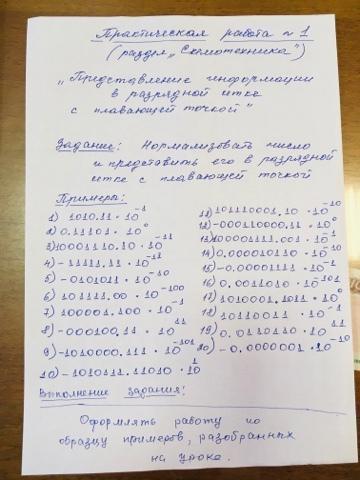 Практическая работа № 1
(раздел „Схемотехника")
„Представление информации
в разрядной сетке
с плавающей точкой"
Задание: Нормализовать число
и представить его в разрядной
сетке с плавающей точкой
Примеры:
1) 1010.11 · 10^-1
2) 0.11101 · 10^0
3) 10001110.10 · 10^-11
4) -11111.11 · 10^-11
5) -0101011 · 10^-10
6) 101111.00 · 10^-100
7) 100001.100 · 10^-1
8) -000100.11 · 10^11
9) -1010000.111 · 10^-101
10) -1010111.11010 · 10^1
11) 101110001.10 · 10^-10
12) -000110000.11 · 10^-11
13) 10001111.001 · 10^-1
14) 0.000010110 · 10^-10
15) -0.00001111 · 10^-1
16) 0.0011010 · 10^101
17) 1010001.1011 · 10^0
18) 10110011 · 10^-1
19) 0.01110110 · 10^11
20) -0.0000001 · 10^-10
Выполнение задания:
Оформлять работу по
образцу примеров, разобранных
на уроке.